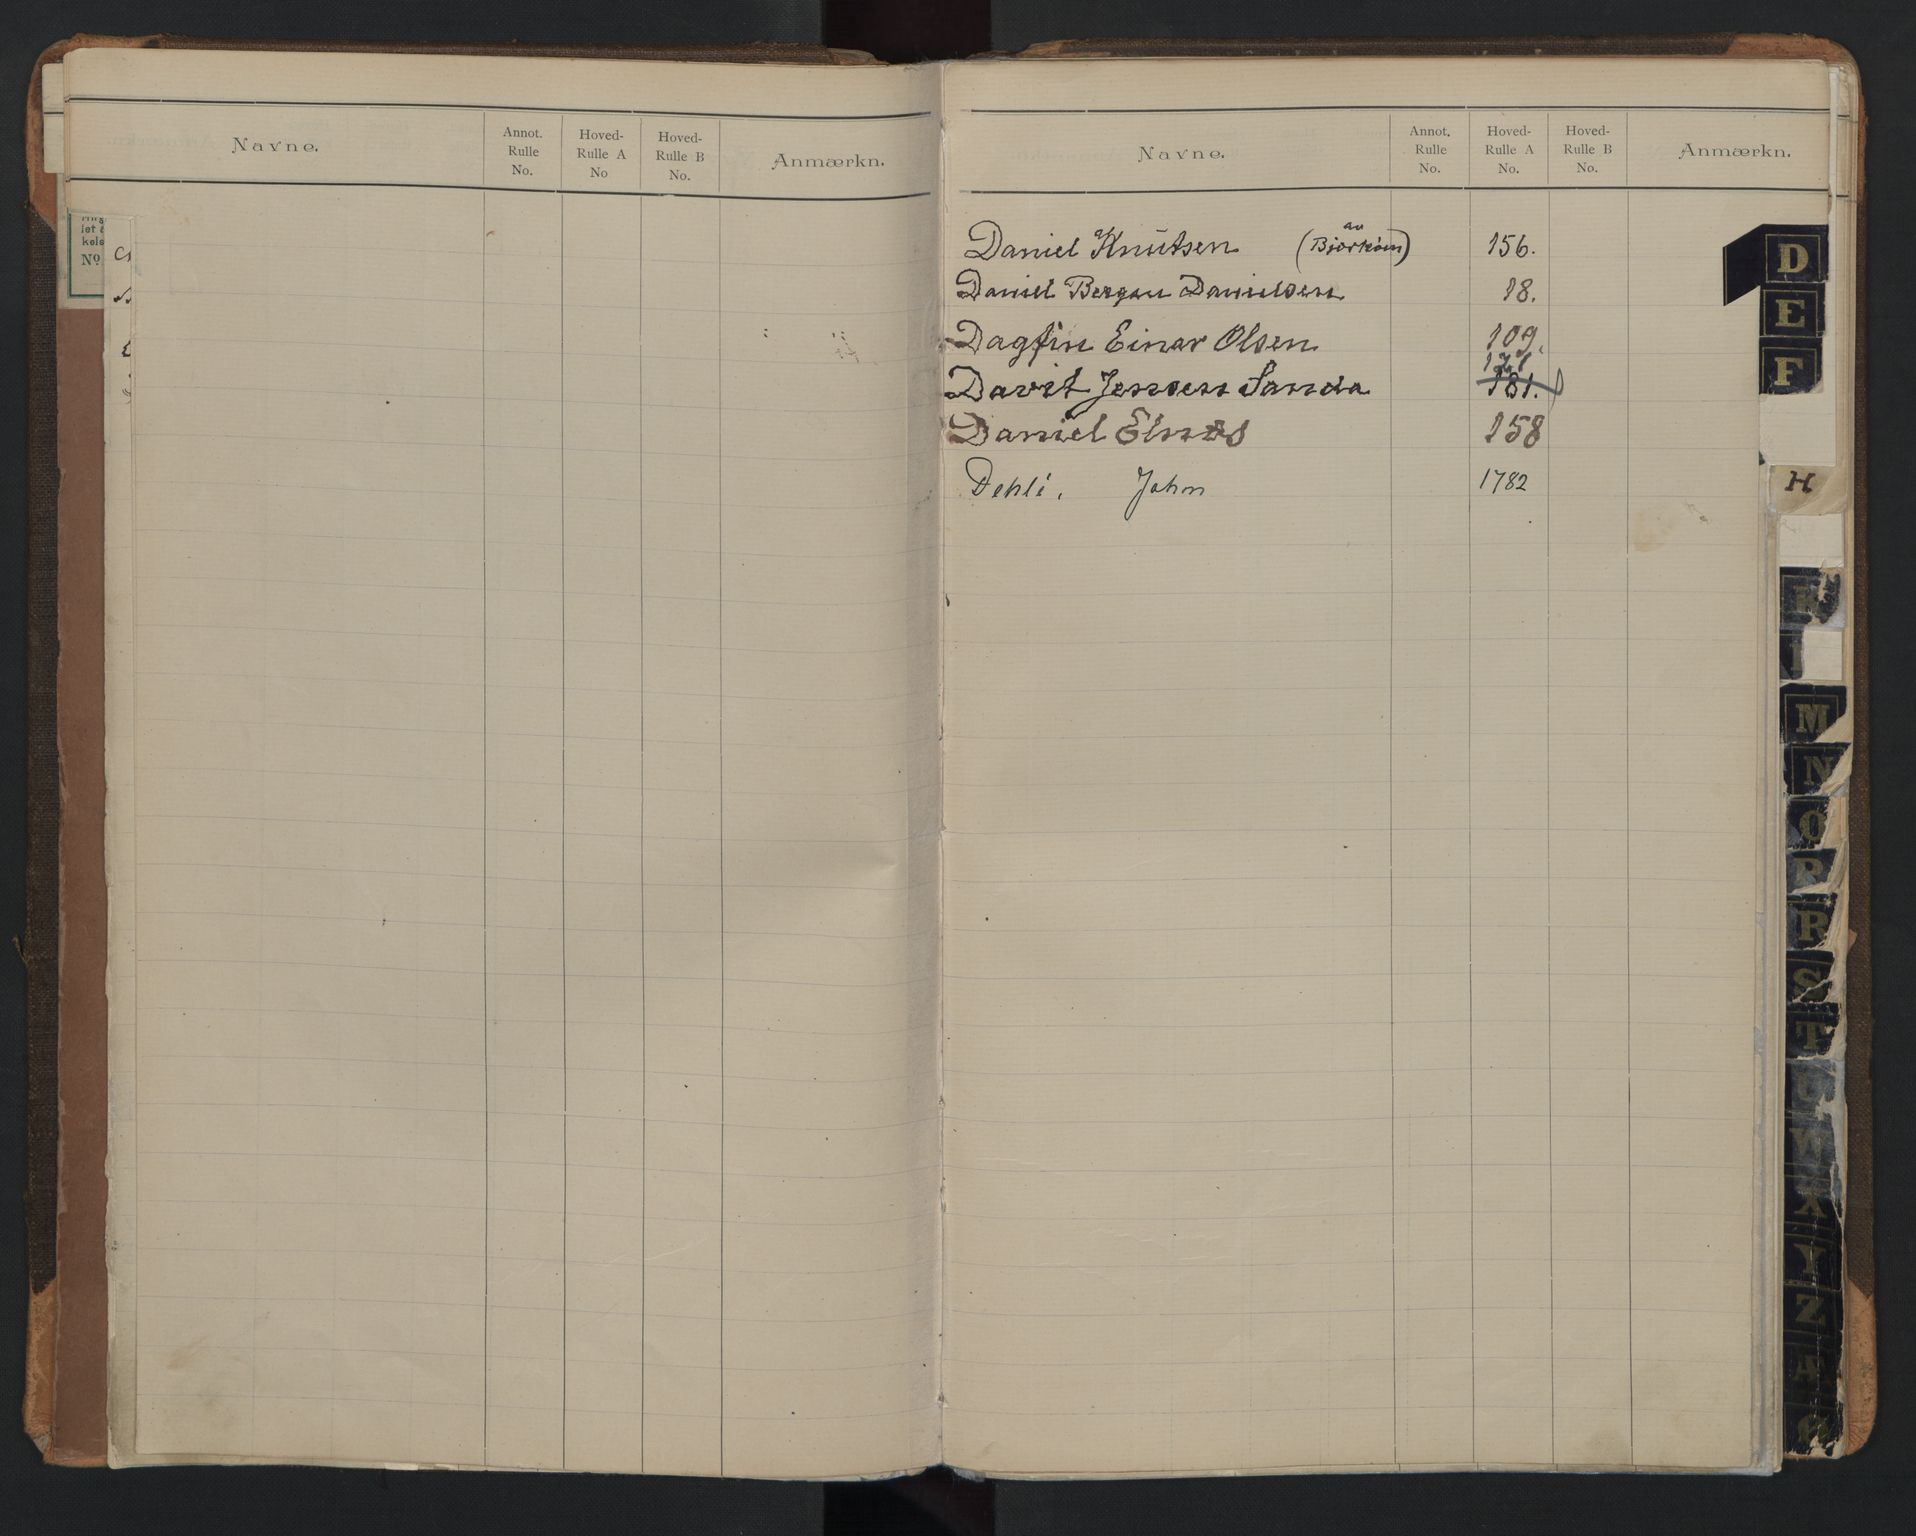 Navne.
Annot. Rulle No.
Hoved-Rulle A No
Hoved-Rulle B No.
Anmærkn.
Navne.
Annot. Rulle No.
Hoved-Rulle A No.
Hoved-Rulle B No.
Anmærkn.
No
Daniel Knutsen 156.
Daniel Bergau Danielsen 18.
Dagfin Einar Olsen 109.
Davit Jensen Sanda 181.
Daniel Elnes 158
Dehli, John 1782
D
E
F
H
K
M
N
O
P
R
S
T
U
W
X
Y
Z
Æ